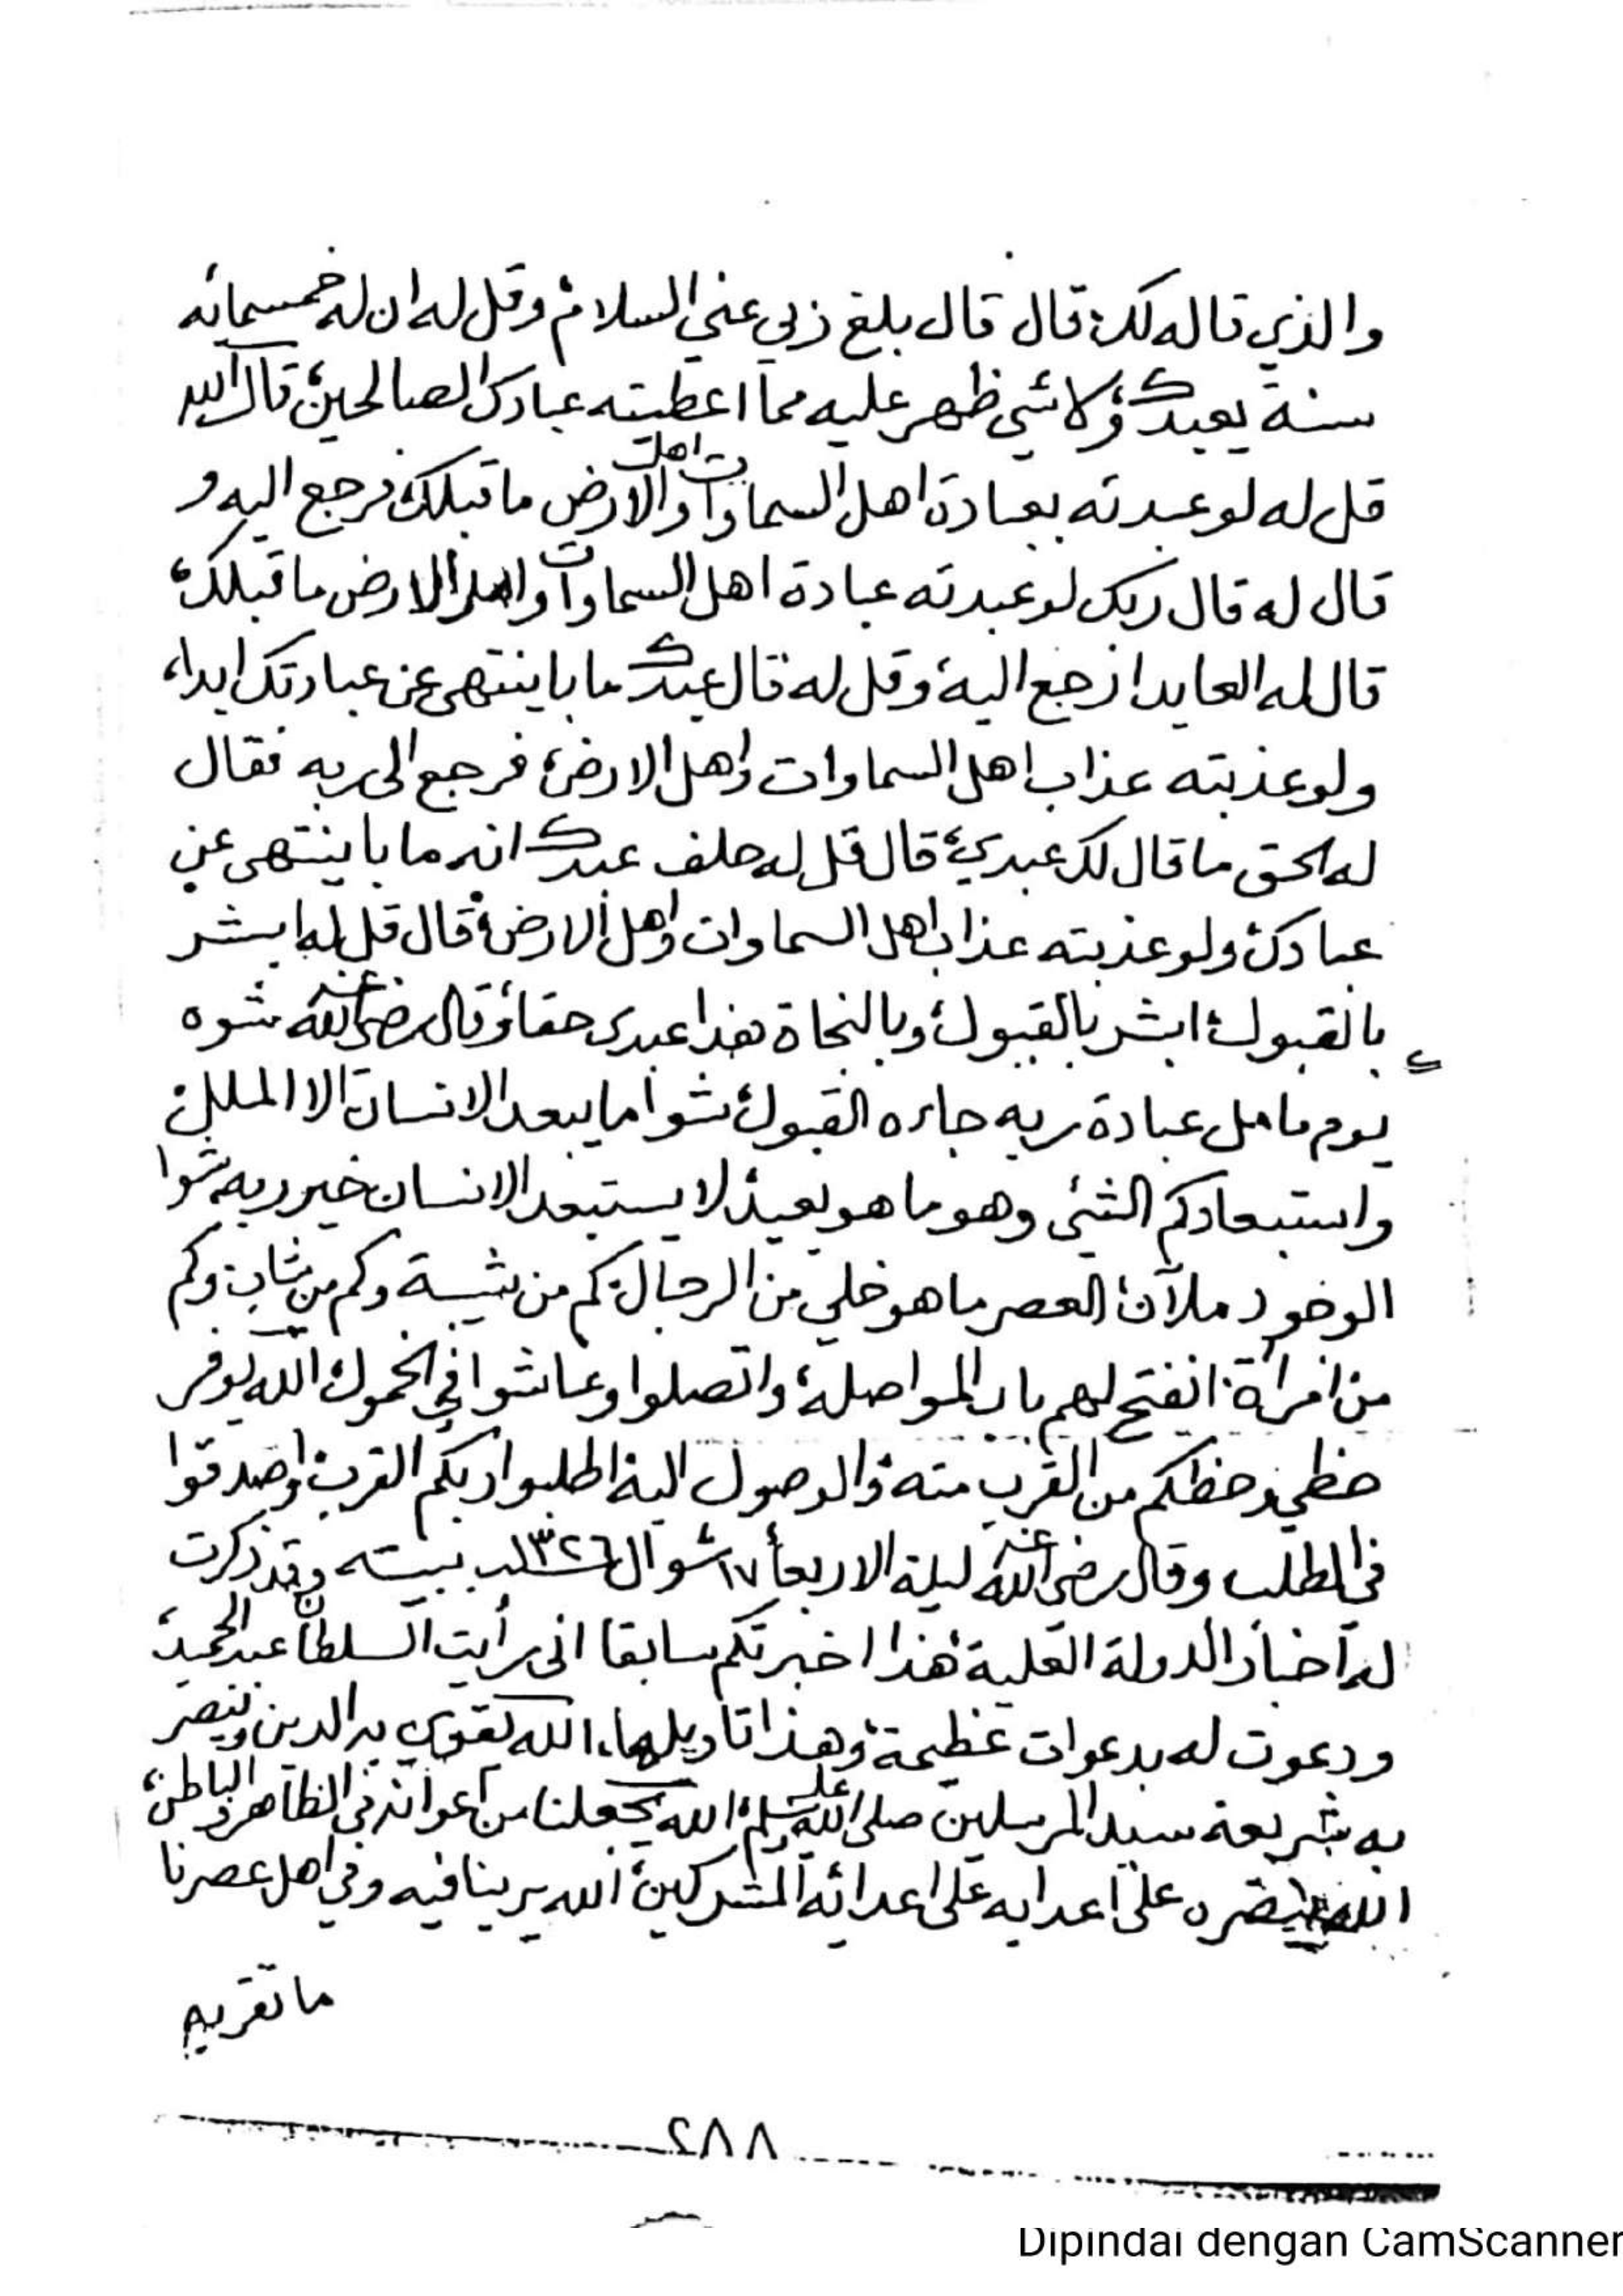 والذي قاله لك، قال قال بلغ ربي عني السلام، وقل له ان له خمسمائه
سنة يعبدك، ولاشي ظهر عليه مما اعطيته عبادك الصالحين، قال الله
قل له لو عبدته بعبادة اهل السماوات واهل الارض ما قبلك، فرجع اليه و
قال له قال ربك لو عبدته عبادة اهل السماوات واهل الارض ما قبلك،
قال له العابد ارجع اليه، وقل له قال عبدك ما باينتهي عن عبادتك ابدا،
ولو عذبته عذاب اهل السماوات واهل الارض، فرجع الى ربه فقال
له الحق ما قال لك عبدي، قال قل له حلف عبدك انه ما باينتهى عن
عبادتك ولو عذبته عذاب اهل السماوات واهل الارض، قال قل له ابشر
بالقبول، ابشر بالقبول، وبالنجاة هذا عبدى حقا، وقال رضي الله عنه شوه
يوم ما مل عبادة ربه جاءه القبول، شوا ما يبعد الانسان الا الملل،
واستبعادكم الشئى وهو ما هو بعيد، لا يستبعد الانسان خير ربه، شوا
الوجود ملآن، العصر ما هو خلي من الرجال، كم من شيبة وكم من شاب، وكم
من امرأة، انفتح لهم باب المواصلة، واتصلوا وعاشوا في الخمول، الله يوفر
حظي وحظكم من القرب منه، والوصول اليه، اطلبوا ربكم القرب، واصدقوا
في الطلب وقال رضي الله عنه ليلة الاربعاء ١٧ شوال ١٣٢٦ ببيته وقد ذكرت
له اخبار الدولة العلية، هذا اخبرتكم سابقا انى رأيت السلطان عبد الحميد،
ودعوت له بدعوات عظيمة، وهذا تاويلها، الله يقوي به الدين وينصر
به شريعة سيد المرسلين صلى الله عليه وسلم، الله يجعلنا من اعوانه في الظاهر والباطن،
الله ينصره على اعدايه على اعدائه المشركين، الله يرينا فيه وفي اهل عصرنا
ما تقر به
٢٨٨
Dipindai dengan CamScanner